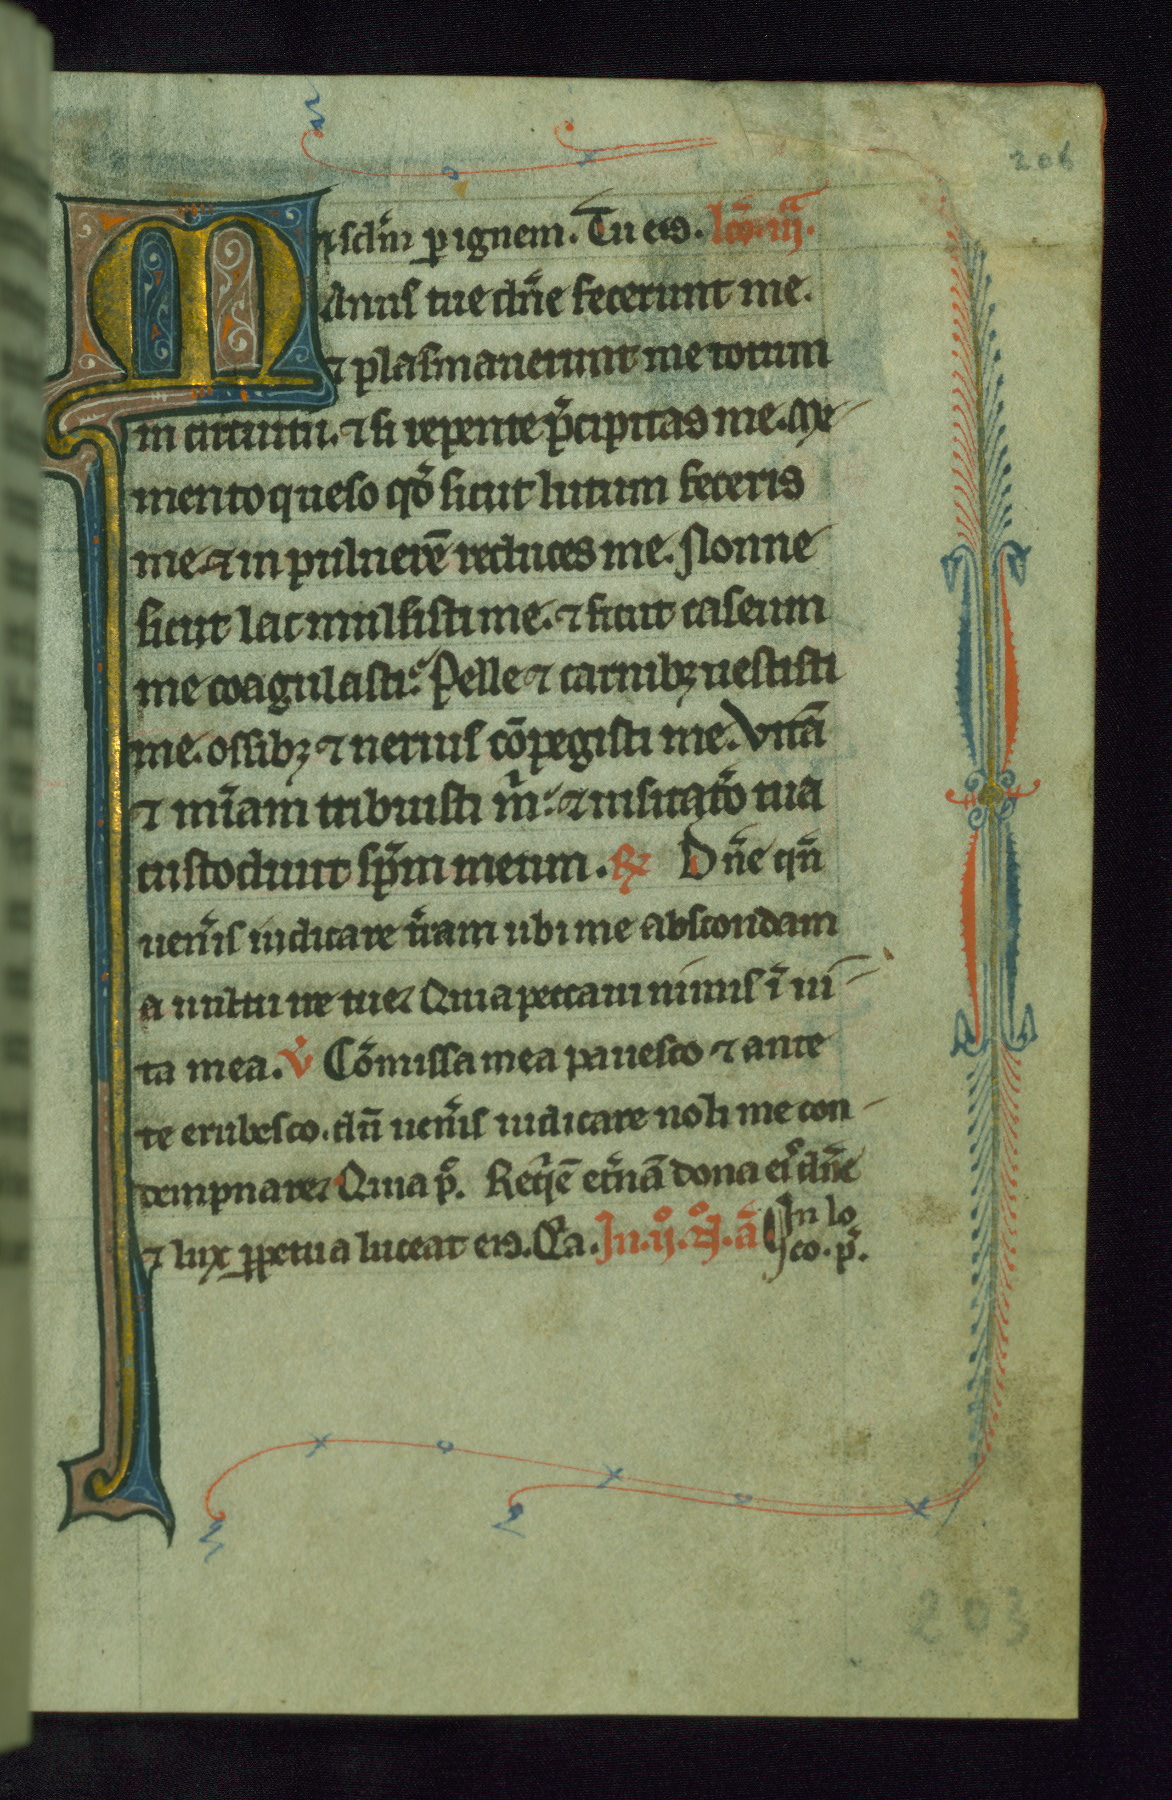 206
& sclm̄ ꝑ ignem. Tu eis. lcō. iij.ᵃ
Manus tue dn̄e fecerunt me.
⁊ plasmauerunt me totum
in circuitu. ⁊ si repente p̄cipitas me. Me
mento queso qd̄ sicut lutum feceris
me. ⁊ in puluerē reduces me. Nonne
sicut lac mulsisti me. ⁊ sicut caseum
me coagulasti. Pelle ⁊ carnibꝫ uestisti
me. ossibꝫ ⁊ neruis cōpegisti me. Vitā
⁊ mīam tribuisti m̄. ⁊ uisitatō tua
custodiuit sp̄m meum. R̸ Dn̄e qn̄
uen̄is iudicare t̄ram ubi me abscondam
a uultu ire tue. Quia peccaui nimis ī ui
ta mea. V̇ Cōmissa mea pauesco ⁊ ante
te erubesco. dū uen̄is iudicare noli me con
dempnare. Quia p̄. Req̄ē et̄nā dona ei⁹ dn̄e
⁊ lux ꝑpetua luceat eis. Ca. In. ij.ᵒ ā In lo
co. p̄.
203